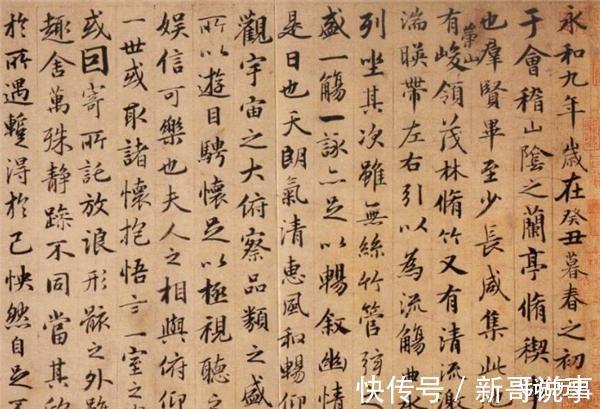 永和九年歲在癸丑暮春之初
于會稽山陰之蘭亭脩稧
也羣賢畢至少長咸集此
有崇山峻領茂林脩竹又有清流激
湍暎帶左右引以為流觴曲水
列坐其次雖無絲竹管弦之
盛一觴一詠亦足以暢敘幽情
是日也天朗氣清惠風和暢仰
觀宇宙之大俯察品類之盛
所以遊目騁懷足以極視聽之
娛信可樂也夫人之相與俯仰
一世或取諸懷抱悟言一室之
或因寄所託放浪形骸之外雖
趣舍萬殊靜躁不同當其欣
於所遇蹔得於己怏然自足
快传号 / 新哥说事